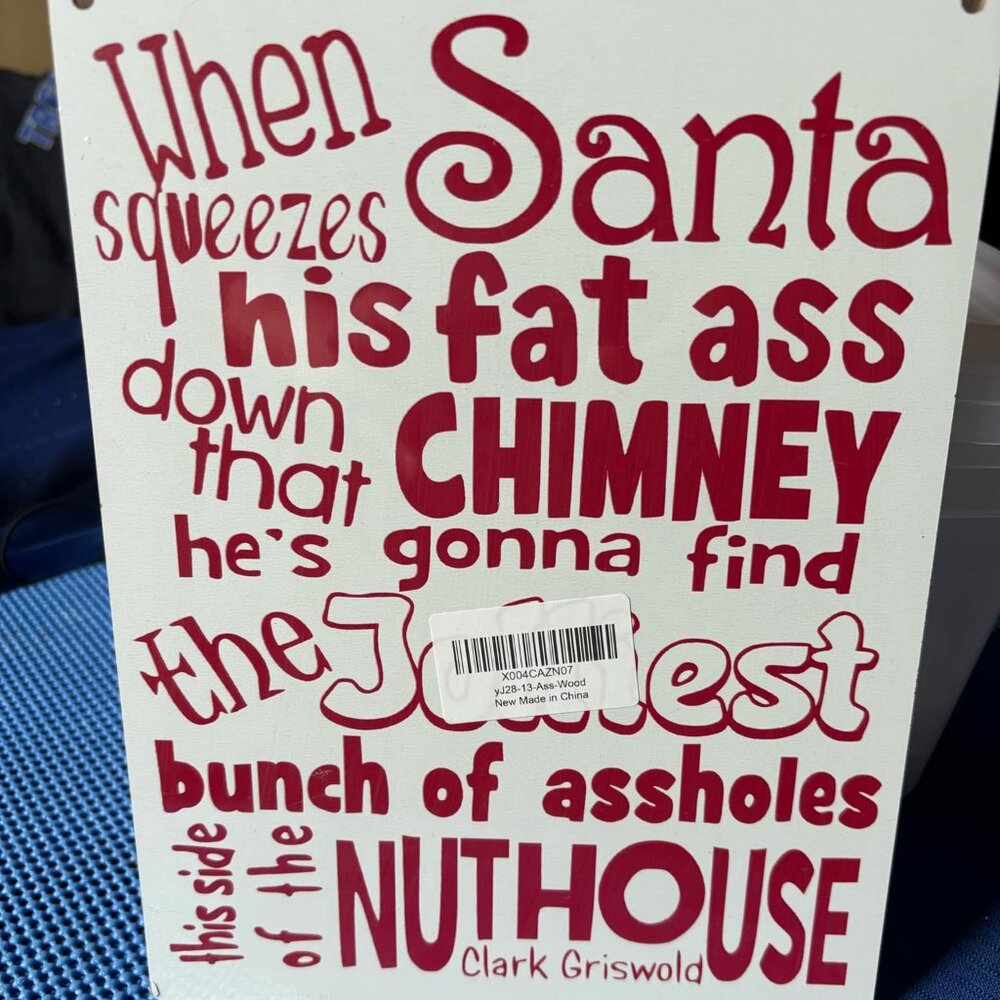 When Santa
squeezes
his fat ass
down
that CHIMNEY
he's gonna find
the Jolliest
X004CAZN07
yJ28-13-Ass-Wood
New Made in China
bunch of assholes
this side
of the
NUTHOUSE
Clark Griswold